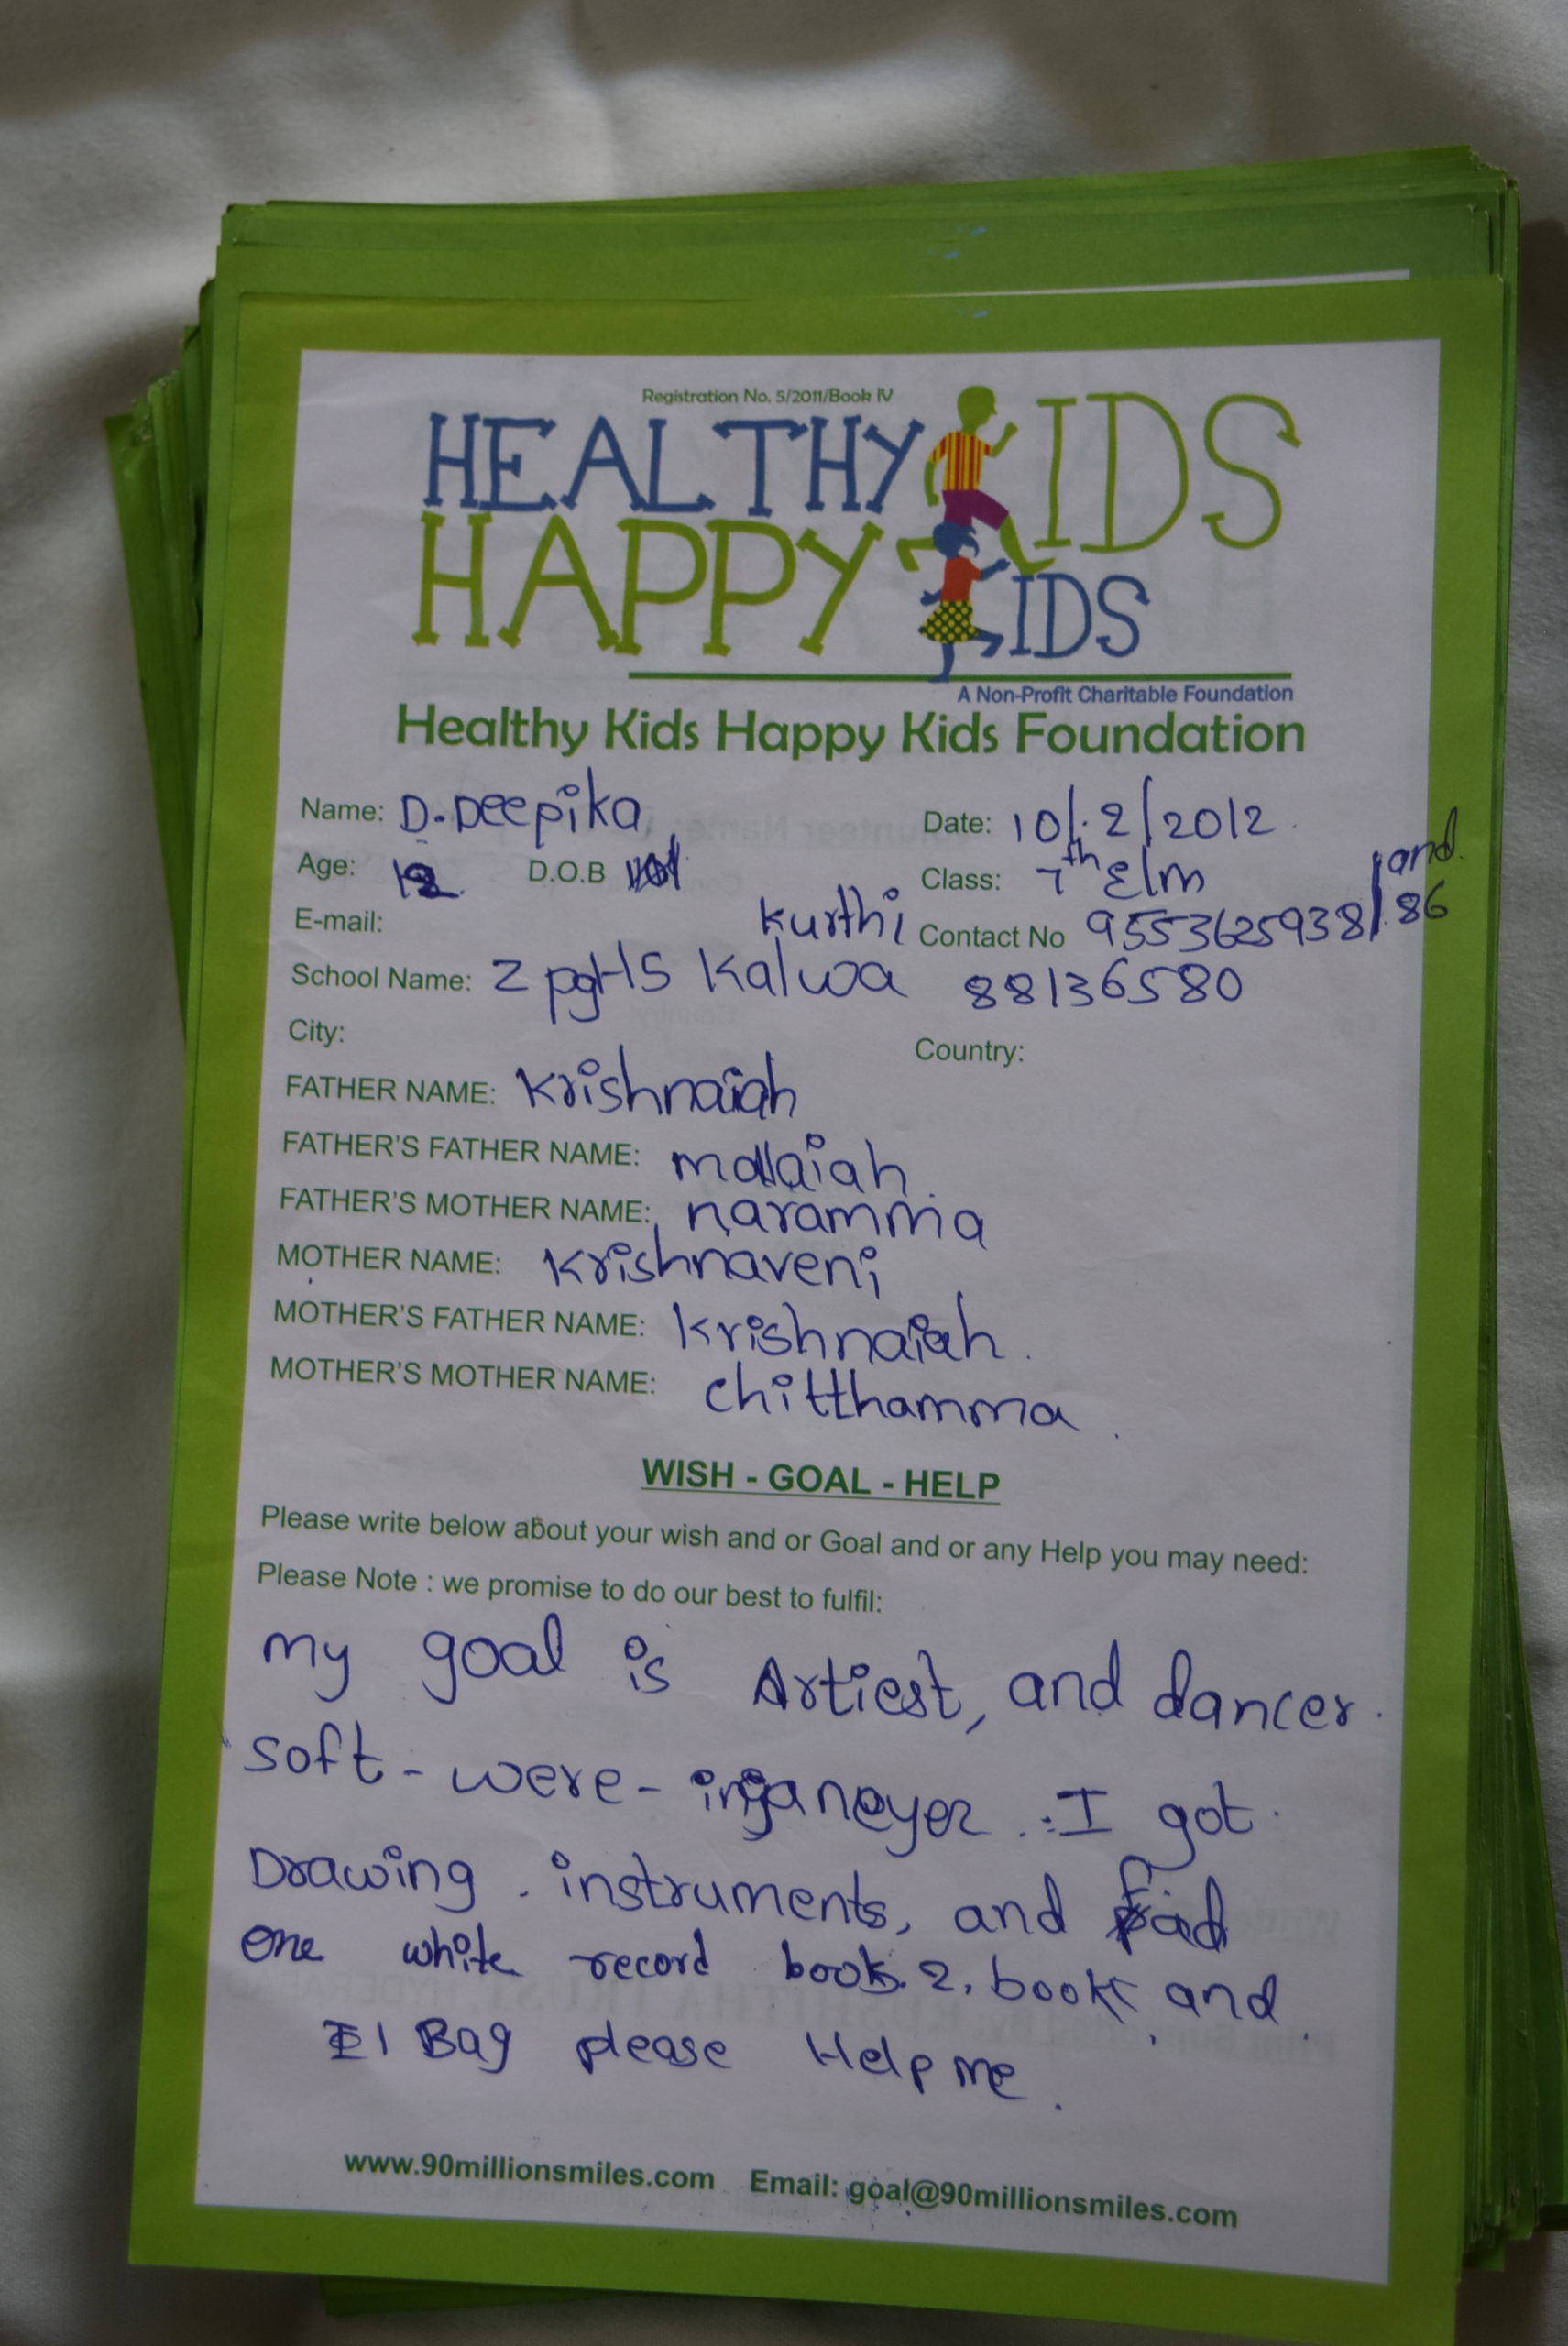 Registration No. 5/2011/Book IV
HEALTHY KIDS
HAPPY KIDS
A Non-Profit Charitable Foundation
Healthy Kids Happy Kids Foundation
Name: D.Deepika Date: 10/.2/2012
Age: 12 D.O.B Class: 7th Elm
E-mail: Contact No 9553625938/86 and
School Name: ZpgHS Kalwakurthi 88136580
City: Country:
FATHER NAME: Krishnaiah
FATHER'S FATHER NAME: mallaiah.
FATHER'S MOTHER NAME: naramma
MOTHER NAME: Krishnaveni
MOTHER'S FATHER NAME: Krishnaiah.
MOTHER'S MOTHER NAME: chitthamma.
WISH - GOAL - HELP
Please write below about your wish and or Goal and or any Help you may need:
Please Note : we promise to do our best to fulfil:
my goal is Artiest, and dancer.
soft - were - inganeyer. I got
Drawing. instruments, and
one white record book. 2. book and
1 Bag please Help me.
www.90millionsmiles.com Email: goal@90millionsmiles.com